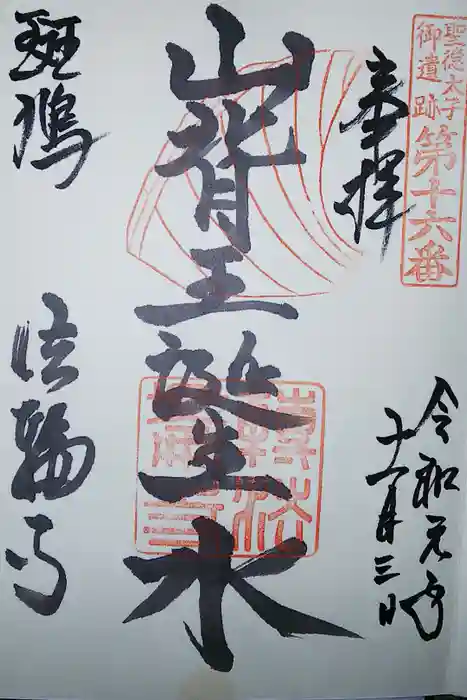 聖徳太子
御遺跡
第十六番
奉拝
令和元年
十一月三日
山背王誕生水
斑鳩
法輪寺